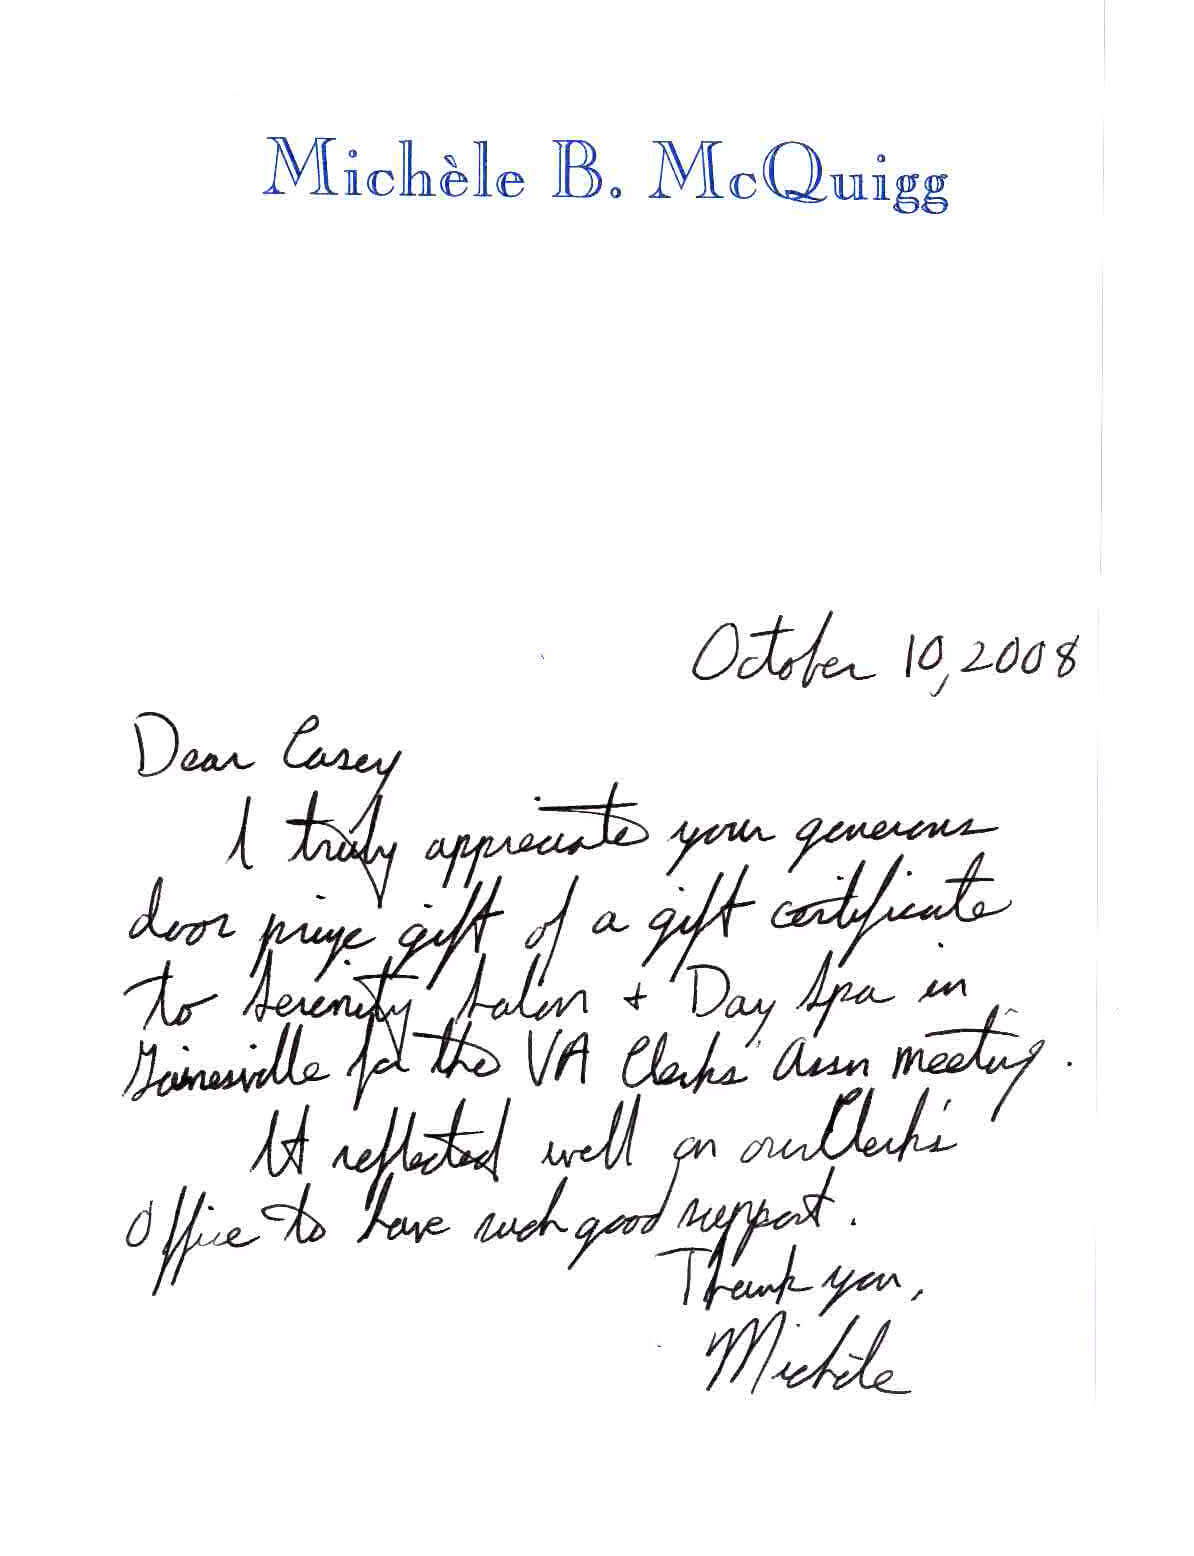 Michèle B. McQuigg
October 10, 2008
Dear Casey
I truly appreciate your generous
door prize gift of a gift certificate
to Serenity Salon + Day Spa in
Gainesville for the VA Clerks' Assn meeting.
It reflected well on our Clerk's
Office to have such good support.
Thank you,
Michèle